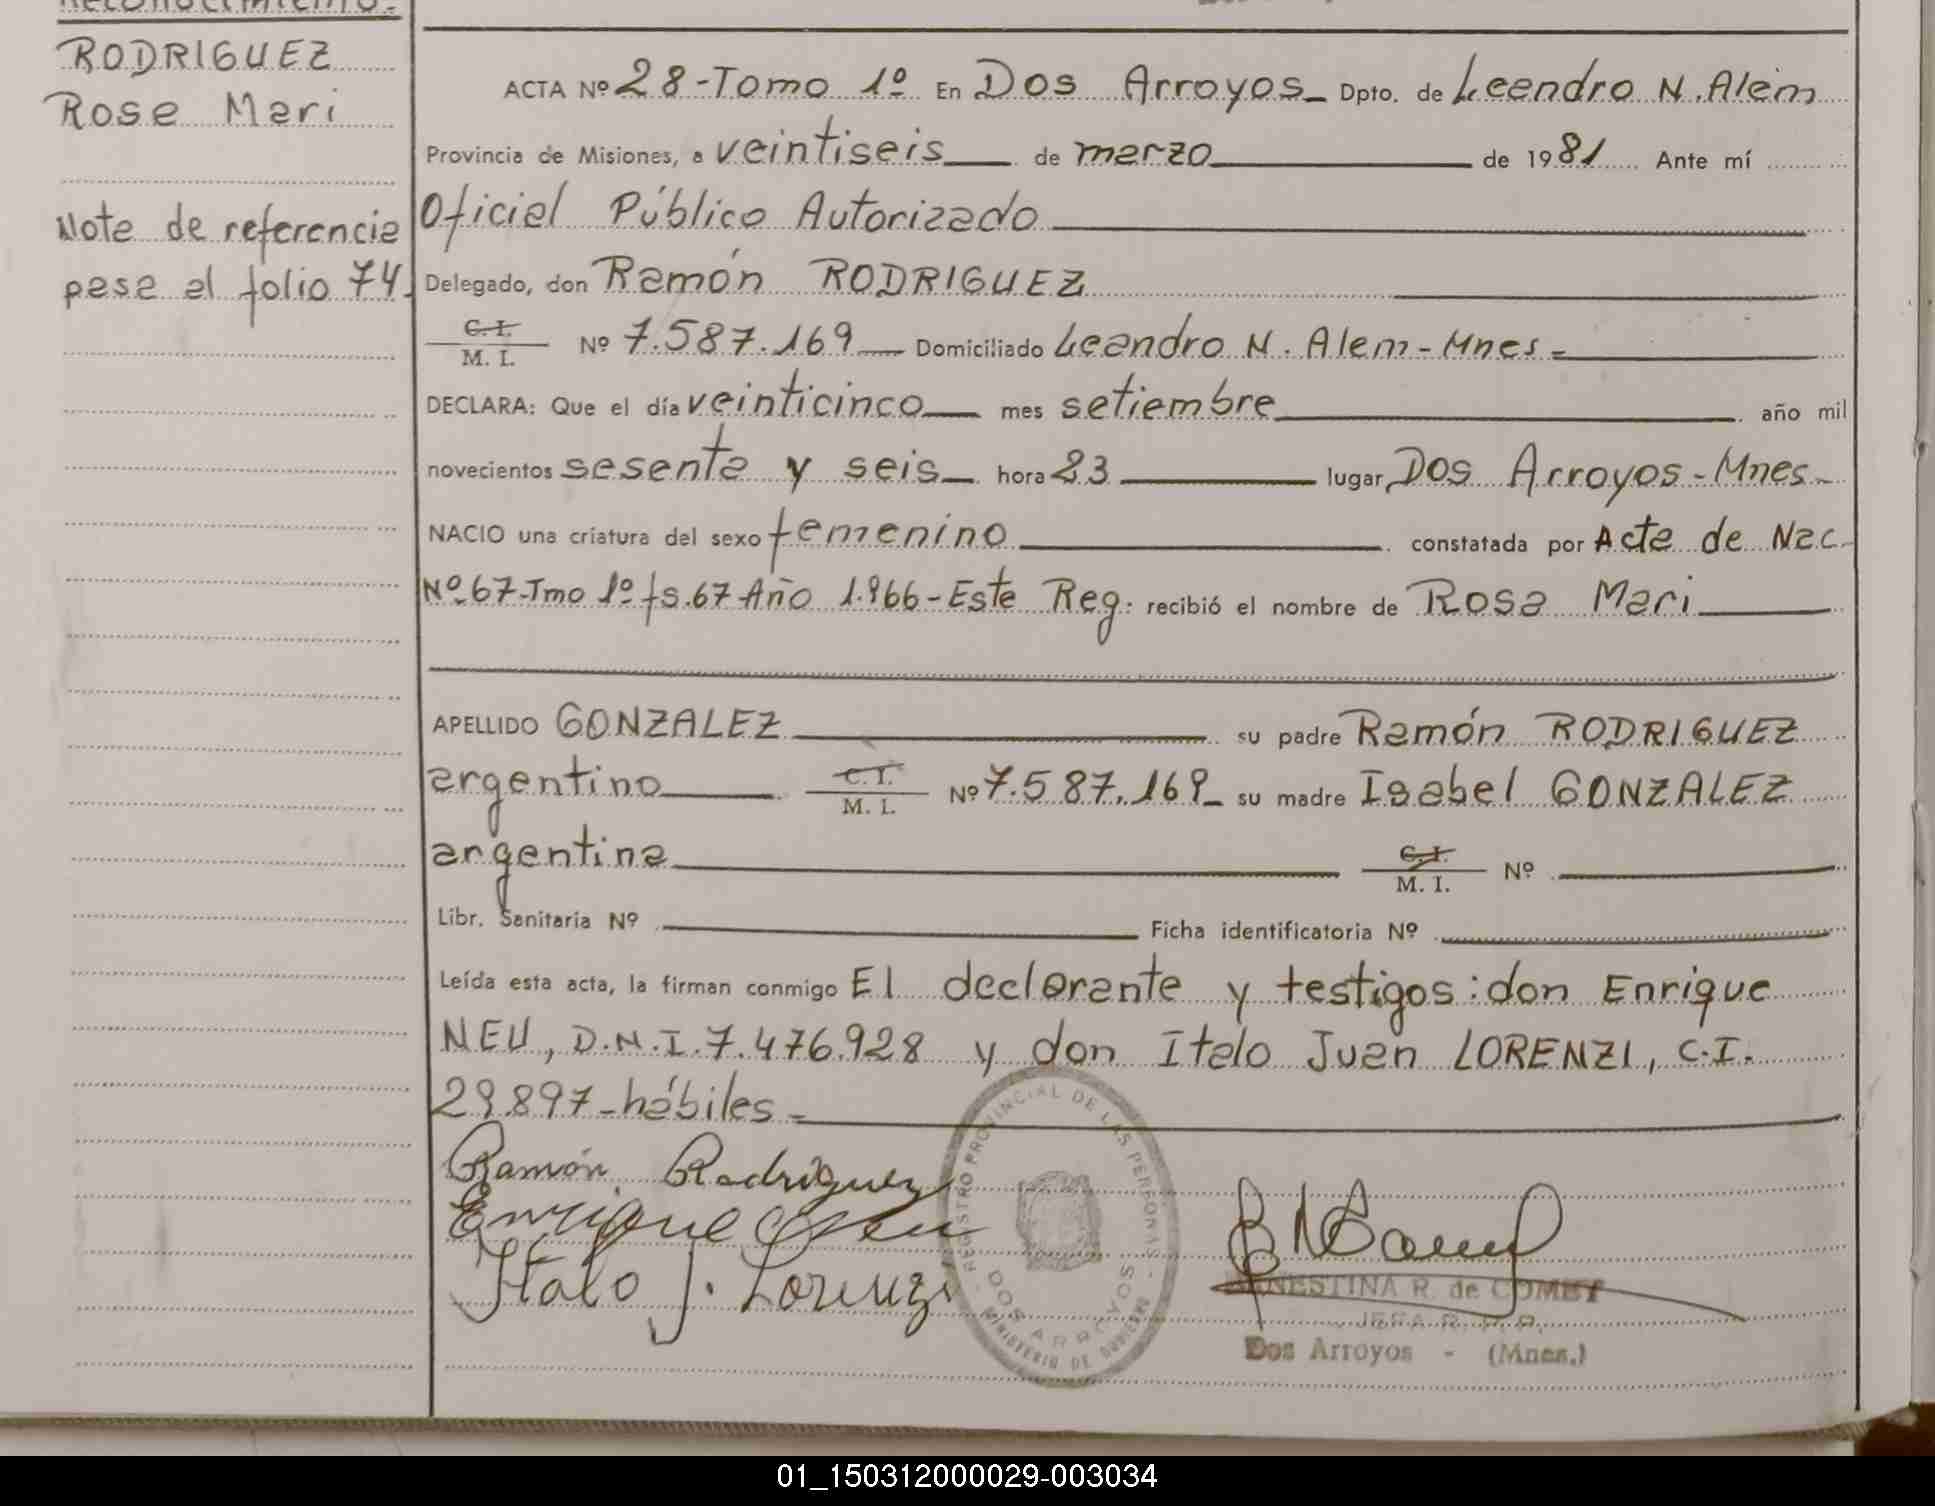 Reconocimiento.-
RODRIGUEZ
Rosa Mari
Nota de referencia
pasa al folio 74.
ACTA Nº 28-Tomo 1º En Dos Arroyos- Dpto. de Leandro N. Alem
Provincia de Misiones, a veintiseis de marzo de 1981 Ante mí
Oficial Público Autorizado
Delegado, don Ramón RODRIGUEZ
C. I.
M. I. Nº 7.587.169 Domiciliado Leandro N. Alem-Mnes-
DECLARA: Que el día veinticinco mes setiembre año mil
novecientos sesenta y seis hora 23 lugar Dos Arroyos-Mnes-
NACIO una criatura del sexo femenino constatada por Acta de Nac.
Nº-67-Tmo 1º fs.67-Año 1.966-Este Reg: recibió el nombre de Rosa Mari
APELLIDO GONZALEZ su padre Ramón RODRIGUEZ
argentino C. I. M. I. Nº 7.587.169 su madre Isabel GONZALEZ
argentina C. I. M. I. Nº
Libr. Sanitaria Nº Ficha identificatoria Nº
Leída esta acta, la firman conmigo El declarante y testigos: don Enrique
NEU, D.N.I. 7.476.928 y don Italo Juan LORENZI, C.I.
29.897-hábiles-
Ramón Rodriguez
Enrique Neu
Italo J. Lorenzi
REGISTRO PROVINCIAL DE LAS PERSONAS
DOS ARROYOS
MINISTERIO DE GOBIERNO
ERNESTINA R. de
JEFA R. P. P.
Dos Arroyos - (Mnes.)
01_150312000029-003034